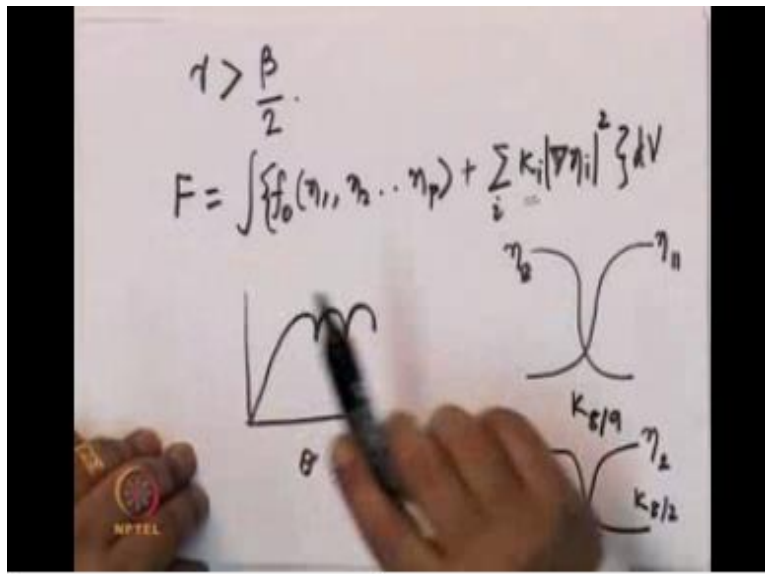 γ > β/2.
F = ∫{f₀(η₁, η₂ .. ηₚ) + Σᵢ Kᵢ|∇ηᵢ|²}dV
η₈ η₁₁
K₈/9
θ η₂
K₈/2
NPTEL